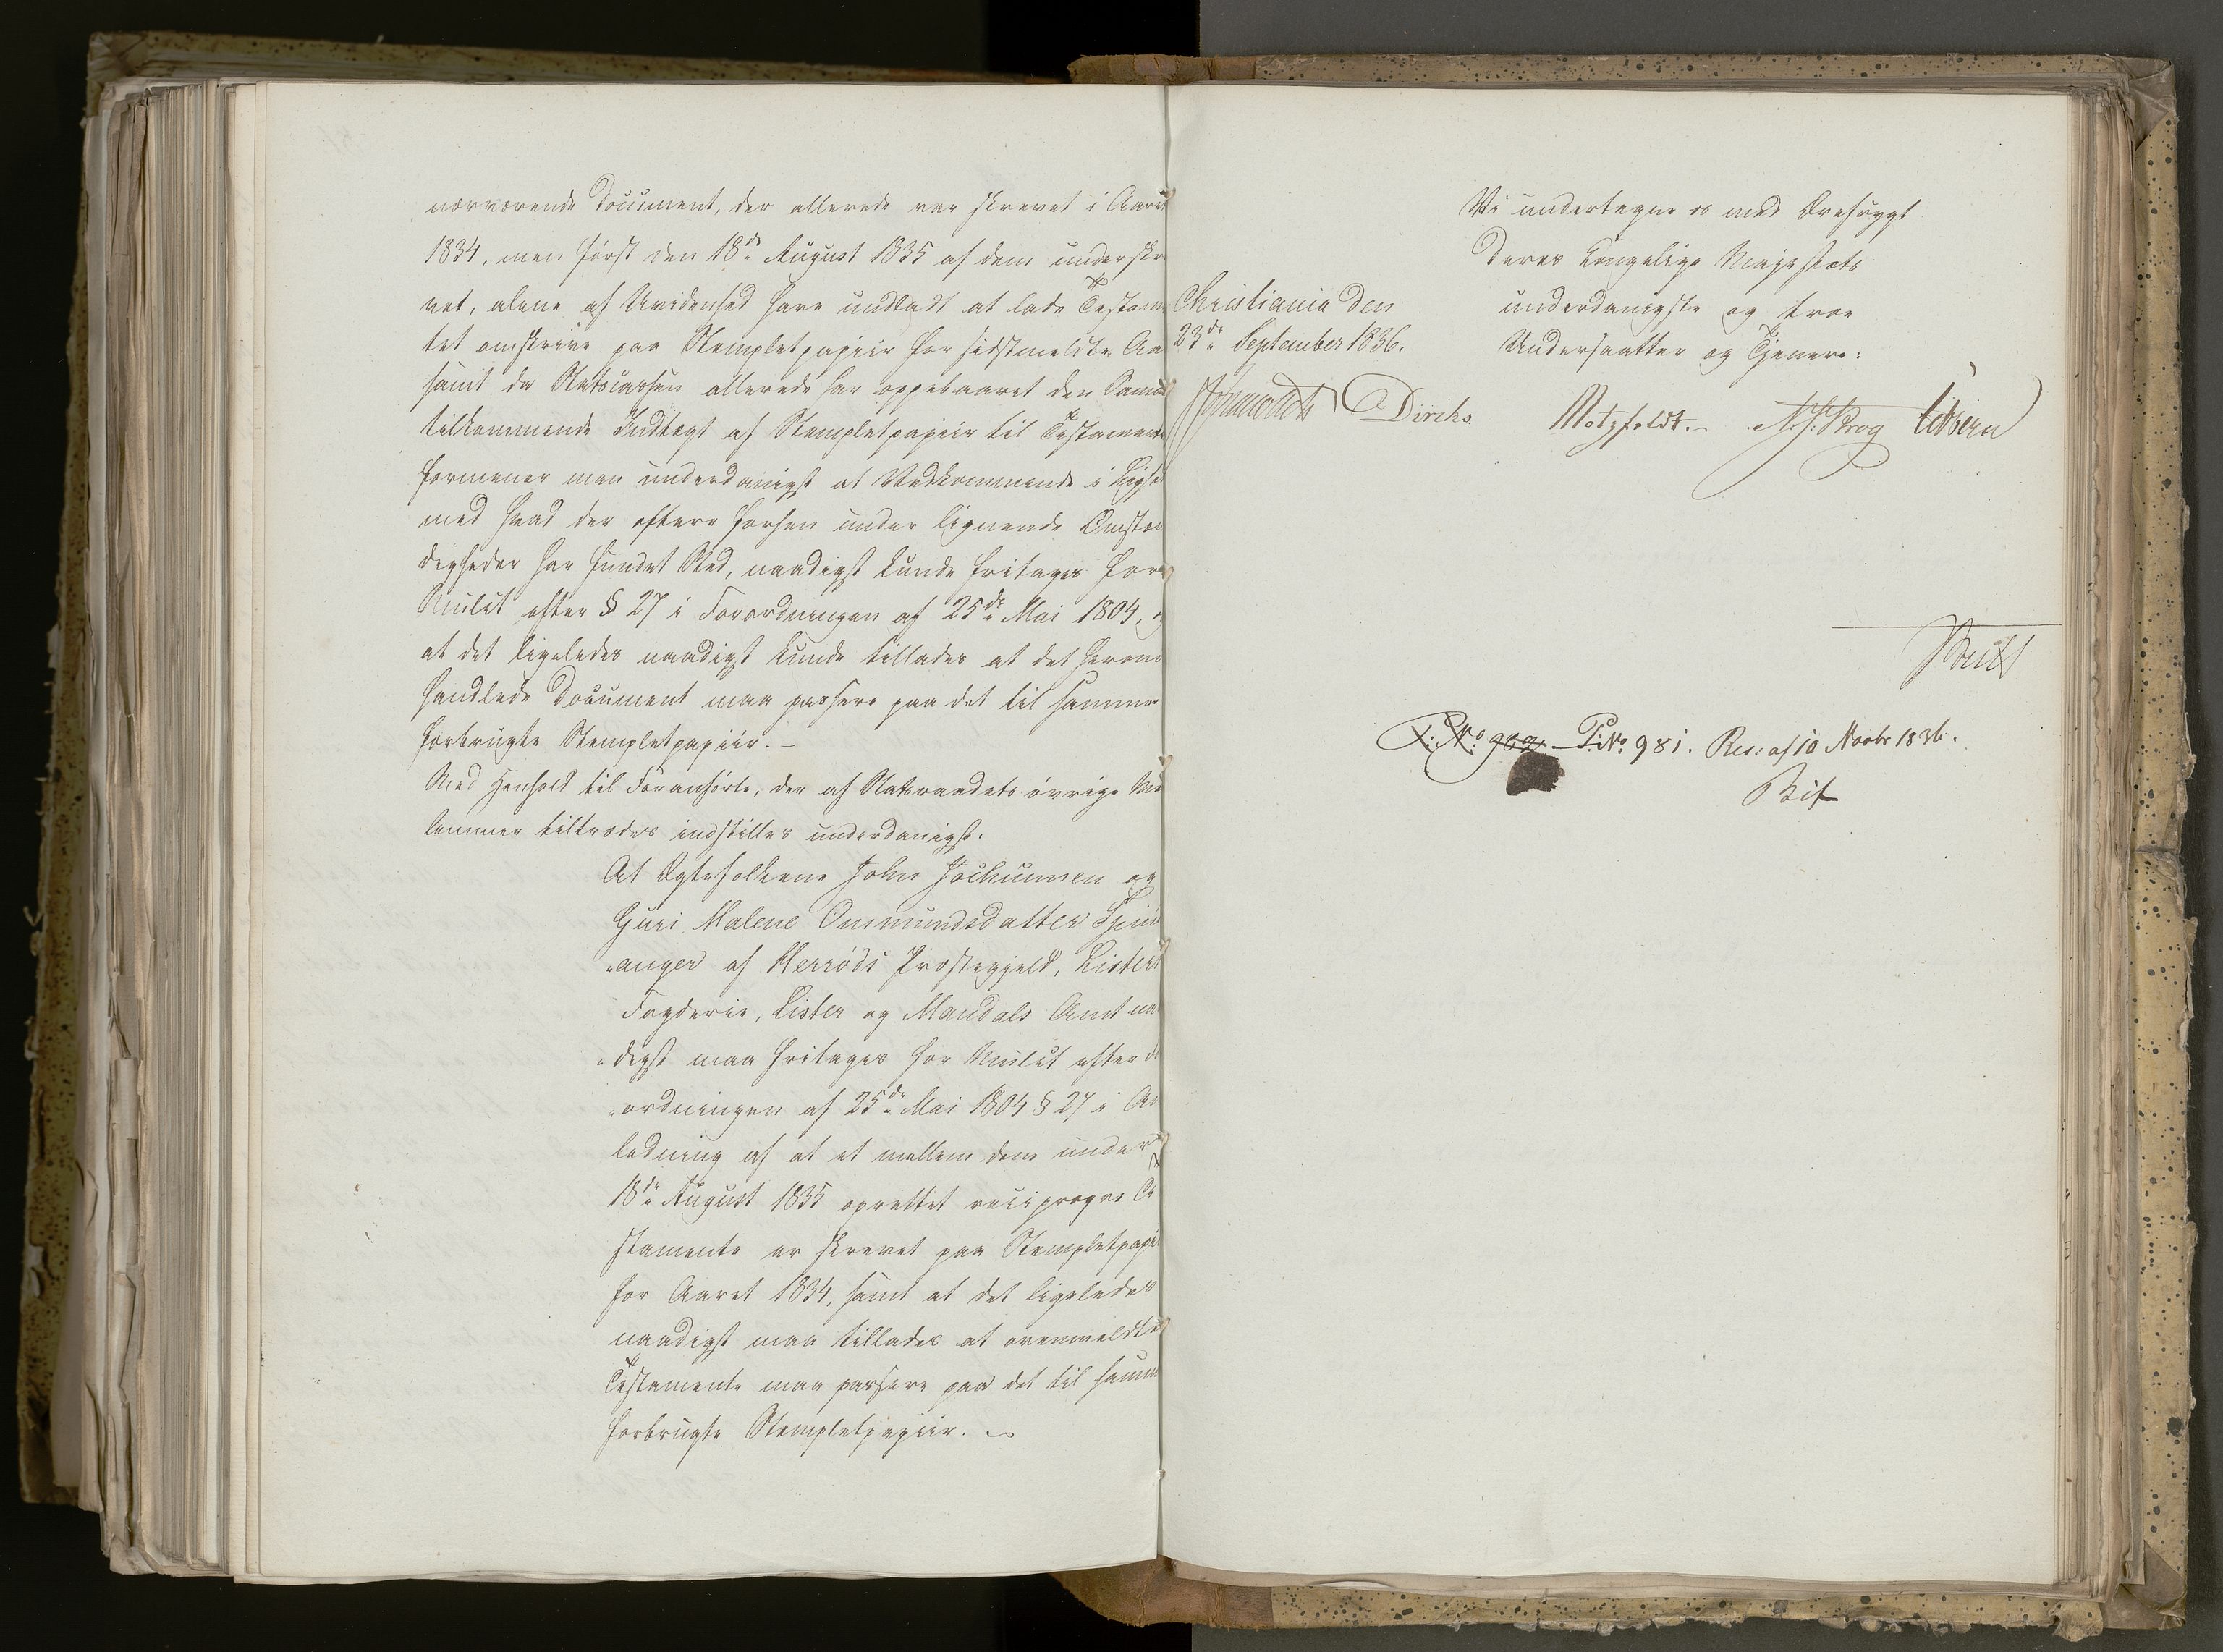 nærværende Document, der allerede var skrevet i Aaret
1834, men først den 18de August 1835 af dem underskre
vet, alene af Uvidenhed have undladt at lade Testamen
tet omskrive paa Stempletpapiir for sidstmeldte Aa
samt da Statscassen allerede har oppebaaret den Samme
tilkommende Indtægt af Stempletpapiir til Testamente
formener man underdanigst at Vedkommende i Lighed
med hvad der oftere forhen under lignende Omstæn
digheder har fundet Sted, naadigst kunde fritages for
Mulct efter § 27 i Forordningen af 25de Mai 1804, og
at det ligeledes naadigst kunde tillades at det herom
handlede Document maa passere paa det til samme
forbrugte Stempletpapiir. –
Med Henhold til Foranførte, der af Statsraadets øvrige Med
lemmer tiltrædes indstilles underdanigst.
At Ægtefolkene John Jochumsen og
Guri Malene Ommundsdatter Spind
anger af Herrøds Præstegjeld, Listers
Fogderie, Lister og Mandals Amt naa
digst maa fritages for Mulct efter
ordningen af 25de Mai 1804 § 27 i An
ledning af at et mellem dem under
18de August 1835 oprettet reciproqve Te
stamente er skrevet paa Stempletpapiir
for Aaret 1834, samt at det ligeledes
naadigst maa tillades at ovenmeldte
Testamente maa passere paa det til samme
forbrugte Stempletpapiir.
Vi undertegne os med Ærefrygt
Deres Kongelige Majestæts
underdanigste og troe
Undersaatter og Tjenere.
Christiania den
23de September 1836.
Diriks Motzfeldt. Krog Vibe
P: No 981. Res: af 10 Novbr 1836.